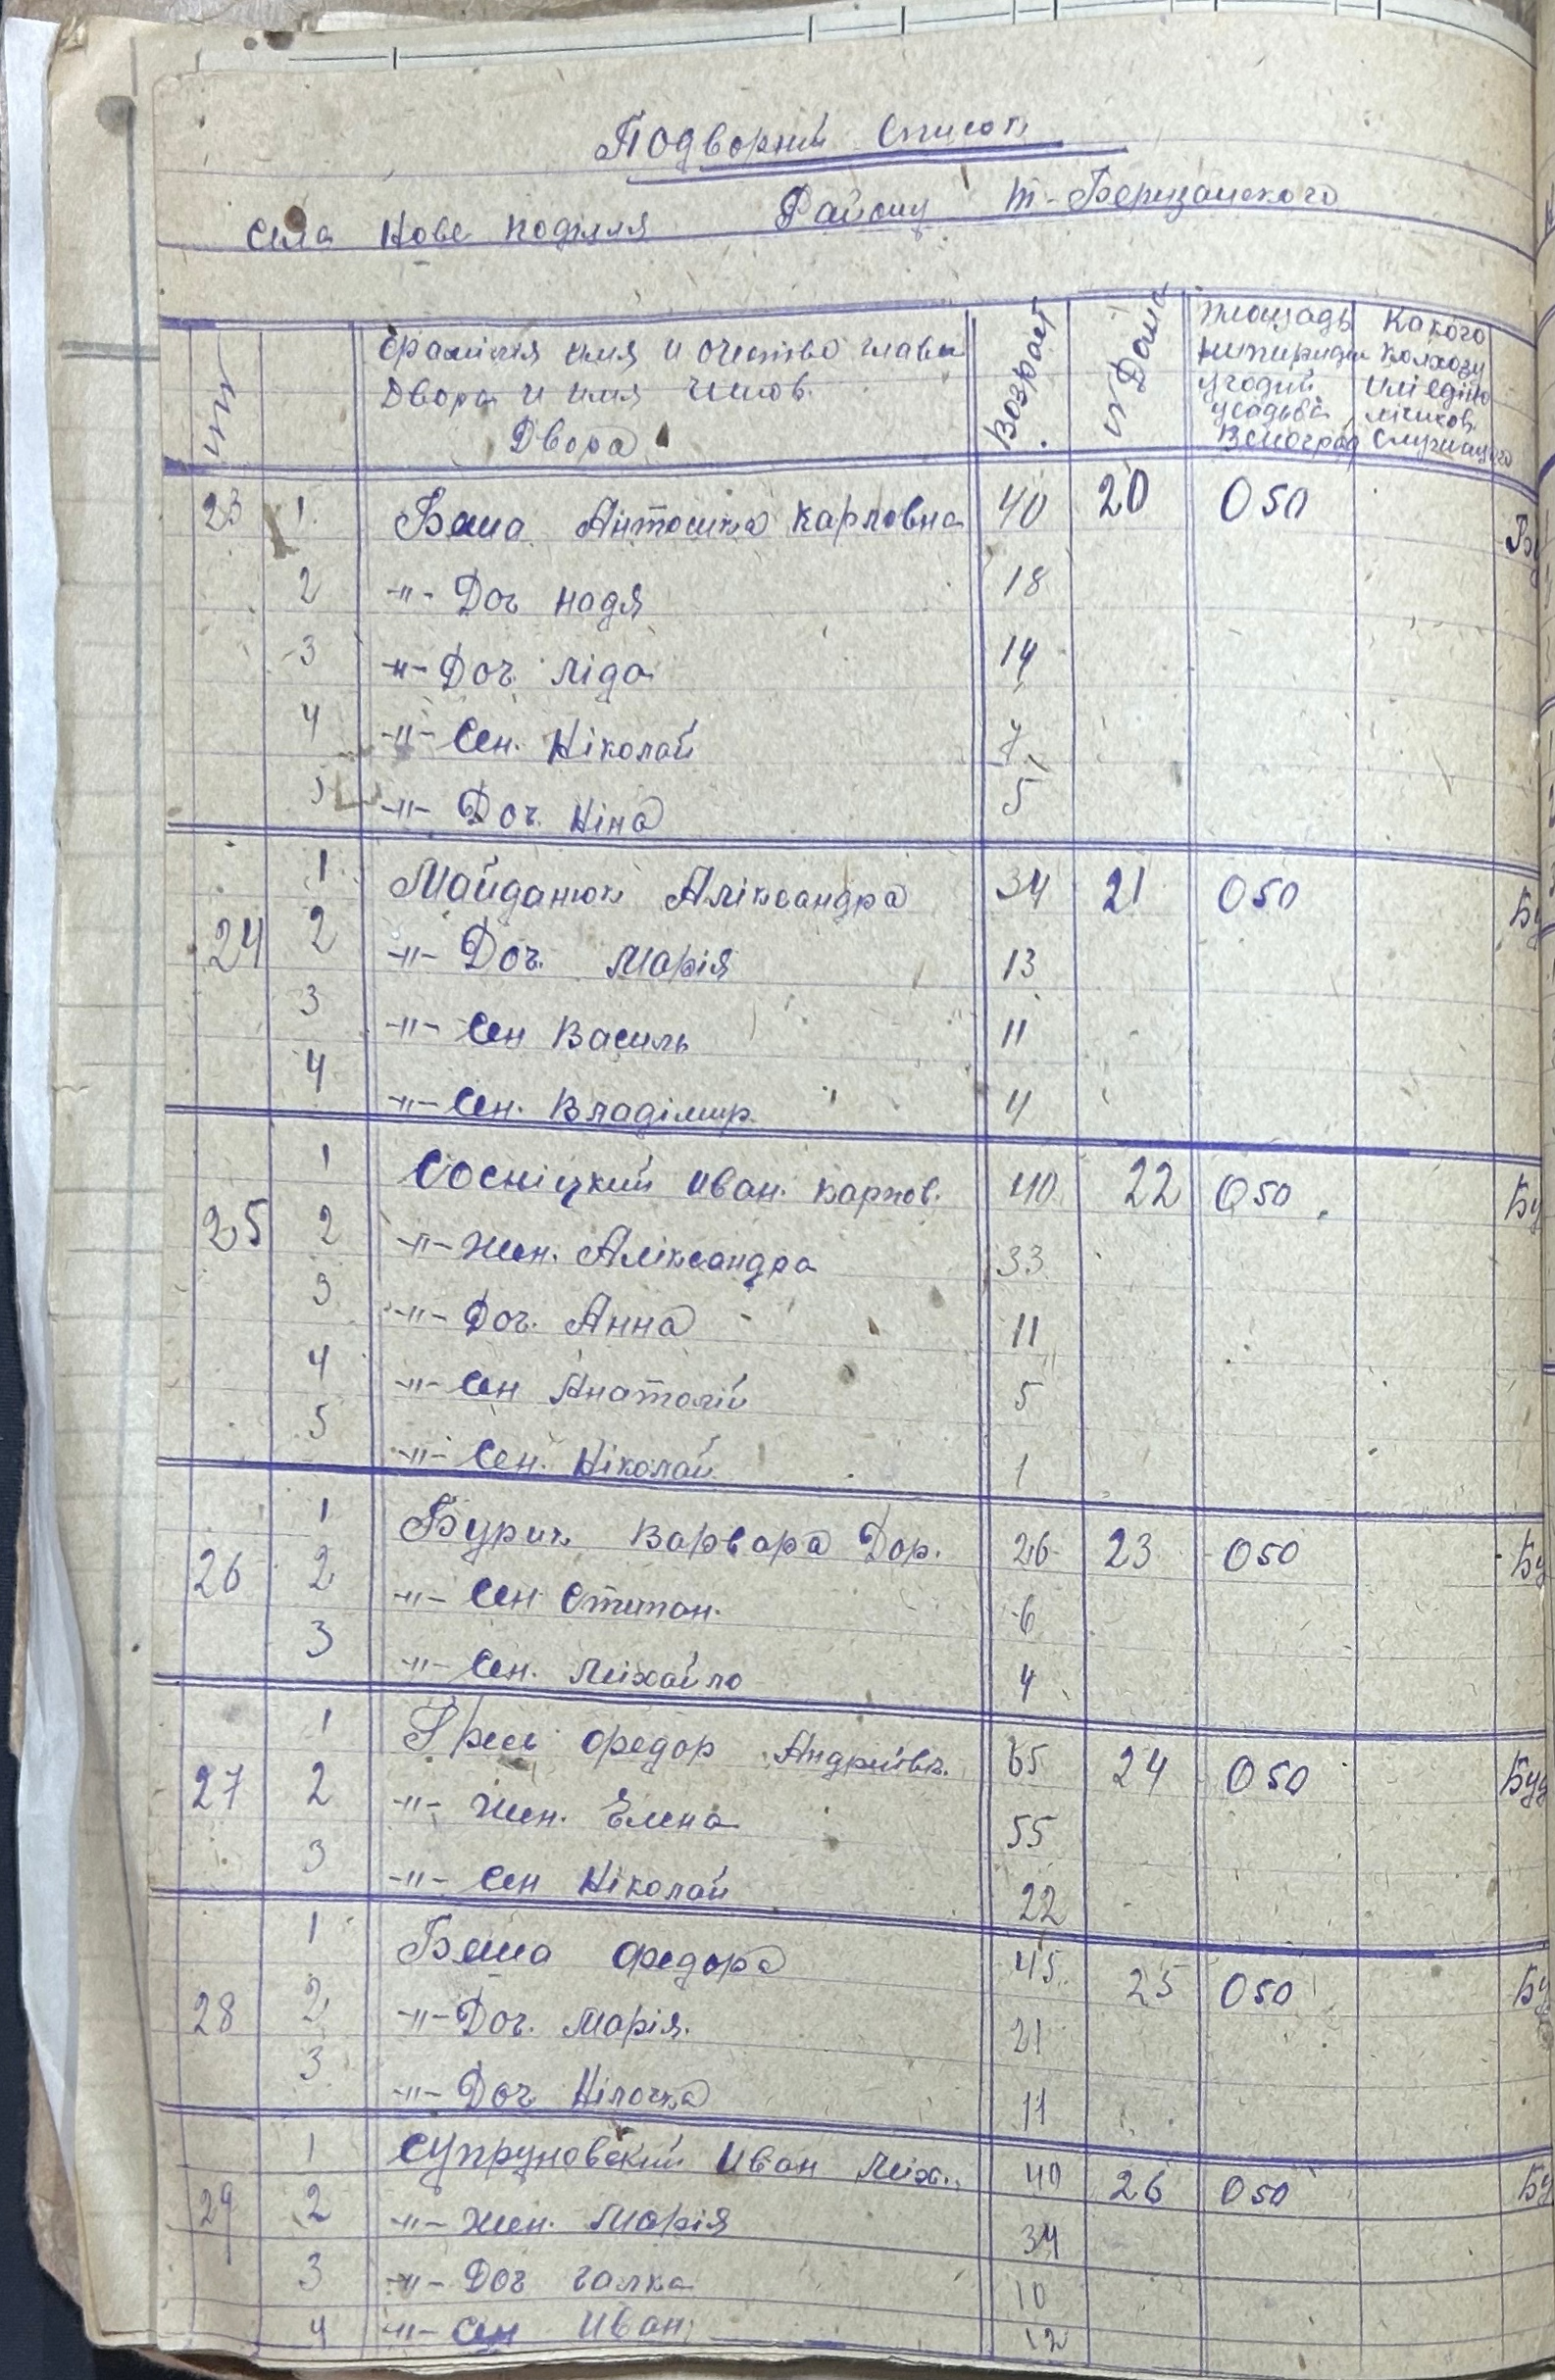 Подворний Список
Села Нове поділля Району Т-Березанского
Фамілія имя и очество главы
Двора и имя членов.
Двора
Возраст
№ Дома
площадь
угодий
усадьба
Виноград
Какого
колхозу
или едіно
лічников.
23 1 Баша Антоніна Карловна 40 20 0 50
2 -"- Доч Надя 18
3 -"- Доч. Ліда 14
4 -"- Сен. Ніколай 7
5 -"- Доч. Ніна 5
1 Майданюк Аліксандра 34 21 0 50 Бу
24 2 -"- Доч. Марія 13
3 -"- Сен Василь 11
4 -"- Сен. Владімир. 4
1 Сосніцкий Иван. Карпов. 40 22 0 50 Бу
25 2 -"- Жен. Аліксандра 33
3 -"- Доч. Анна 11
4 -"- Сен Анатолій 5
5 -"- Сен. Ніколай 1
1 Бурик Варвара Дор. 26 23 0 50 Бу
26 2 -"- Сен Стипан. 6
3 -"- Сен. Міхайло 4
1 Федор Андриівч. 65 24 0 50 Буд
27 2 -"- Жен. Елена 55
3 -"- Сен Ніколай 22
1 Баша Федора 45 25 0 50 Бу
28 2 -"- Доч. Марія. 21
3 -"- Доч Нілочка 11
1 Супруновский Иван Міх. 40 26 0 50 Бу
29 2 -"- Жен. Марія 34
3 -"- Доч Галка 10
4 -"- Сен Иван 12